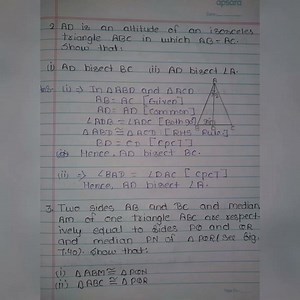 apsara
2. AD is an altitude of an isosceles
triangle ABC in which AB = AC.
Show that:
(i) AD bisect BC (ii) AD bisect ∠A.
(i) ⇒ In ΔABD and ΔACD
AB = AC [Given]
AD = AD [common]
∠ADB = ∠ADC [Both 90°]
ΔABD ≅ ΔACD [RHS Rule]
BD = CD [CPCT]
Hence, AD bisect BC.
(ii) ⇒ ∠BAD = ∠DAC [CPCT]
Hence, AD bisect ∠A.
3. Two sides AB and BC and median
AM of one triangle ABC are respect-
ively equal to sides PQ and QR
and median PN of ΔPQR (see Fig.
7.40). Show that:
(i) ΔABM ≅ ΔPQN
(ii) ΔABC ≅ ΔPQR